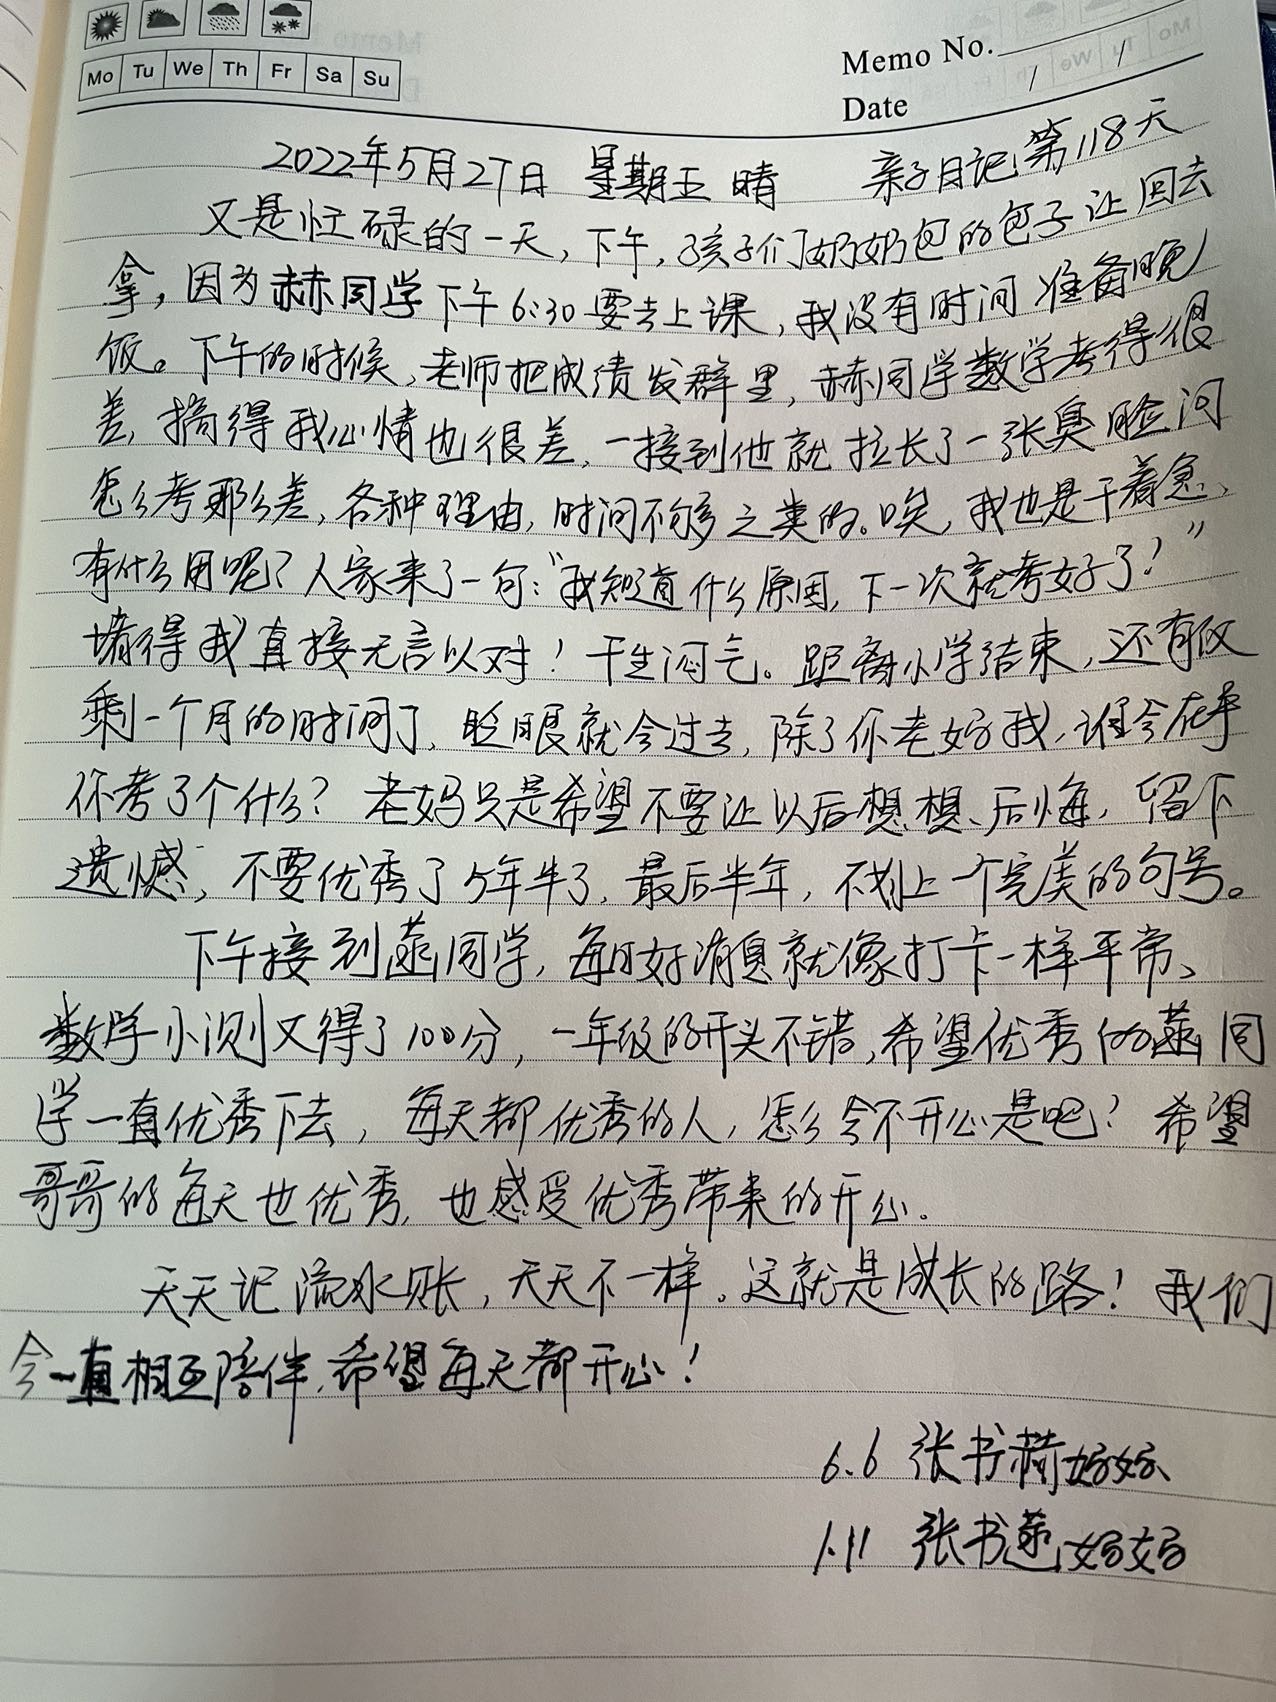 Mo Tu We Th Fr Sa Su
Memo No.
Date / /
2022年5月27日 星期五 晴 亲子日记第118天
又是忙碌的一天，下午，孩子们奶奶包的包子让回去
拿，因为赫同学下午6:30要去上课，我没有时间准备晚
饭。下午的时候，老师把成绩发群里，赫同学数学考得很
差，搞得我心情也很差，一接到他就拉长了一张臭脸问
怎么考那么差，各种理由，时间不够之类的。唉，我也是干着急，
有什么用呢？人家来了一句：“我知道什么原因，下一次就考好了！”
堵得我直接无言以对！干生闷气。距离小学结束，还有仅
剩一个月的时间了，眨眼就会过去，除了你老妈我，谁会在乎
你考了个什么？老妈只是希望不要让以后想想、后悔，留下
遗憾，不要优秀了5年半了，最后半年，不划上一个完美的句号。
下午接到菡同学，每日好消息就像打卡一样平常、
数学小测又得了100分，一年级的开头不错，希望优秀的菡同
学一直优秀下去，每天都优秀的人，怎么会不开心是吧？希望
哥哥的每天也优秀，也感受优秀带来的开心。
天天记流水账，天天不一样。这就是成长的路！我们
会一直相互陪伴，希望每天都开心！
6.6 张书赫妈妈
1.11 张书菡妈妈